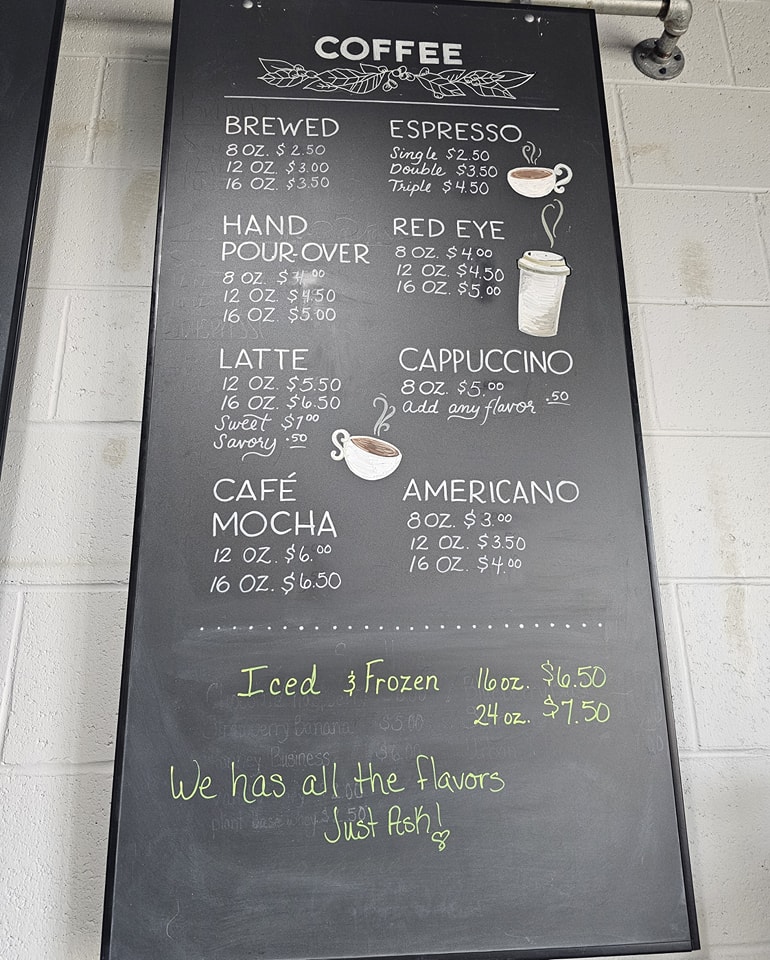 COFFEE
BREWED
8 OZ. $2.50
12 OZ. $3.00
16 OZ. $3.50
ESPRESSO
Single $2.50
Double $3.50
Triple $4.50
HAND
POUR-OVER
8 OZ. $4.00
12 OZ. $4.50
16 OZ. $5.00
RED EYE
8 OZ. $4.00
12 OZ. $4.50
16 OZ. $5.00
LATTE
12 OZ. $5.50
16 OZ. $6.50
Sweet $1.00
Savory .50
CAPPUCCINO
8 OZ. $5.00
add any flavor .50
CAFÉ
MOCHA
12 OZ. $6.00
16 OZ. $6.50
AMERICANO
8 OZ. $3.00
12 OZ. $3.50
16 OZ. $4.00
Iced & Frozen 16 oz. $6.50
24 oz. $7.50
Banana
Business
We has all the flavors
plant base
Just Ask!